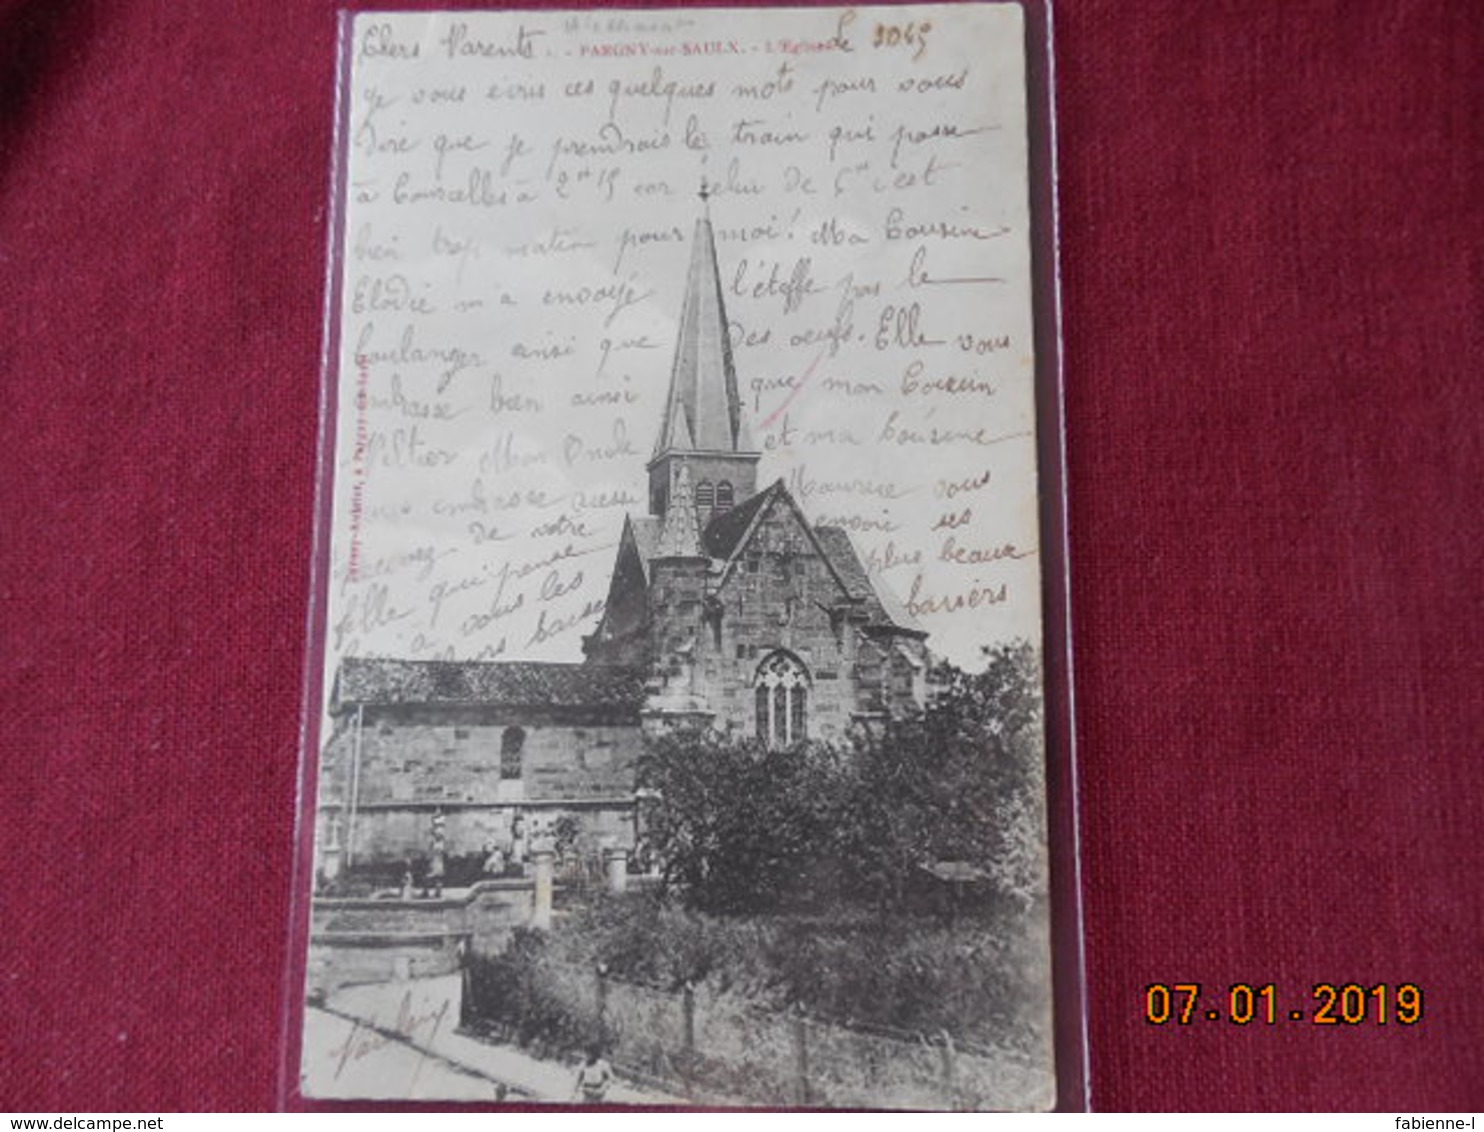 Chers Parents 1. - PARGNY-sur-SAULX. - L'Eglise Le
Je vous ecris ces quelques mots pour vous
dire que je prendrais le train qui passe
à Courcelles à 2 H 15 car celui de 5 H c'est
bien trop matin pour moi! Ma Cousine
Elodie m'a envoyé l'étoffe par le
boulanger ainsi que des oeufs. Elle vous
embrasse bien ainsi que mon Cousin
Mon Oncle et ma Cousine
vous embrasse aussi Maurice vous
Recevez de votre envoie ses
fille qui pense plus beaux
à vous les baisers
baisers
07.01.2019
fabienne-l